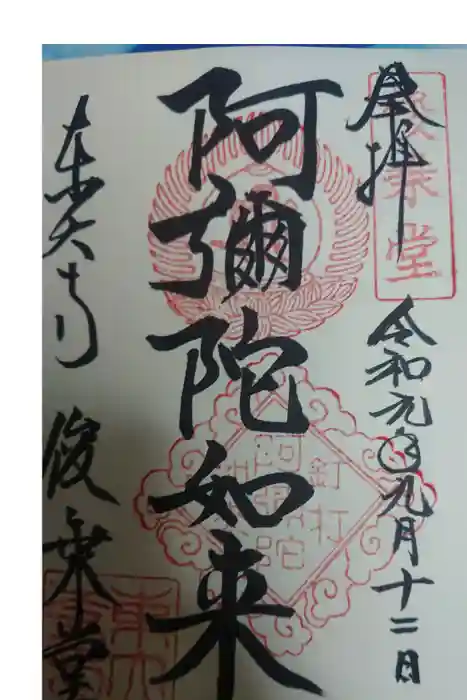 奉拝
俊乗堂
令和元年九月十二日
阿彌陀如来
釘打
阿彌陀
東大寺
俊乗堂